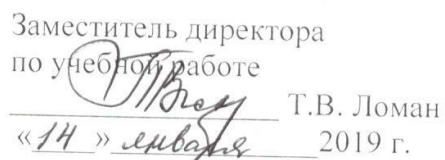 Заместитель директора
по учебной работе
Т.В. Ломан
«14» января 2019 г.